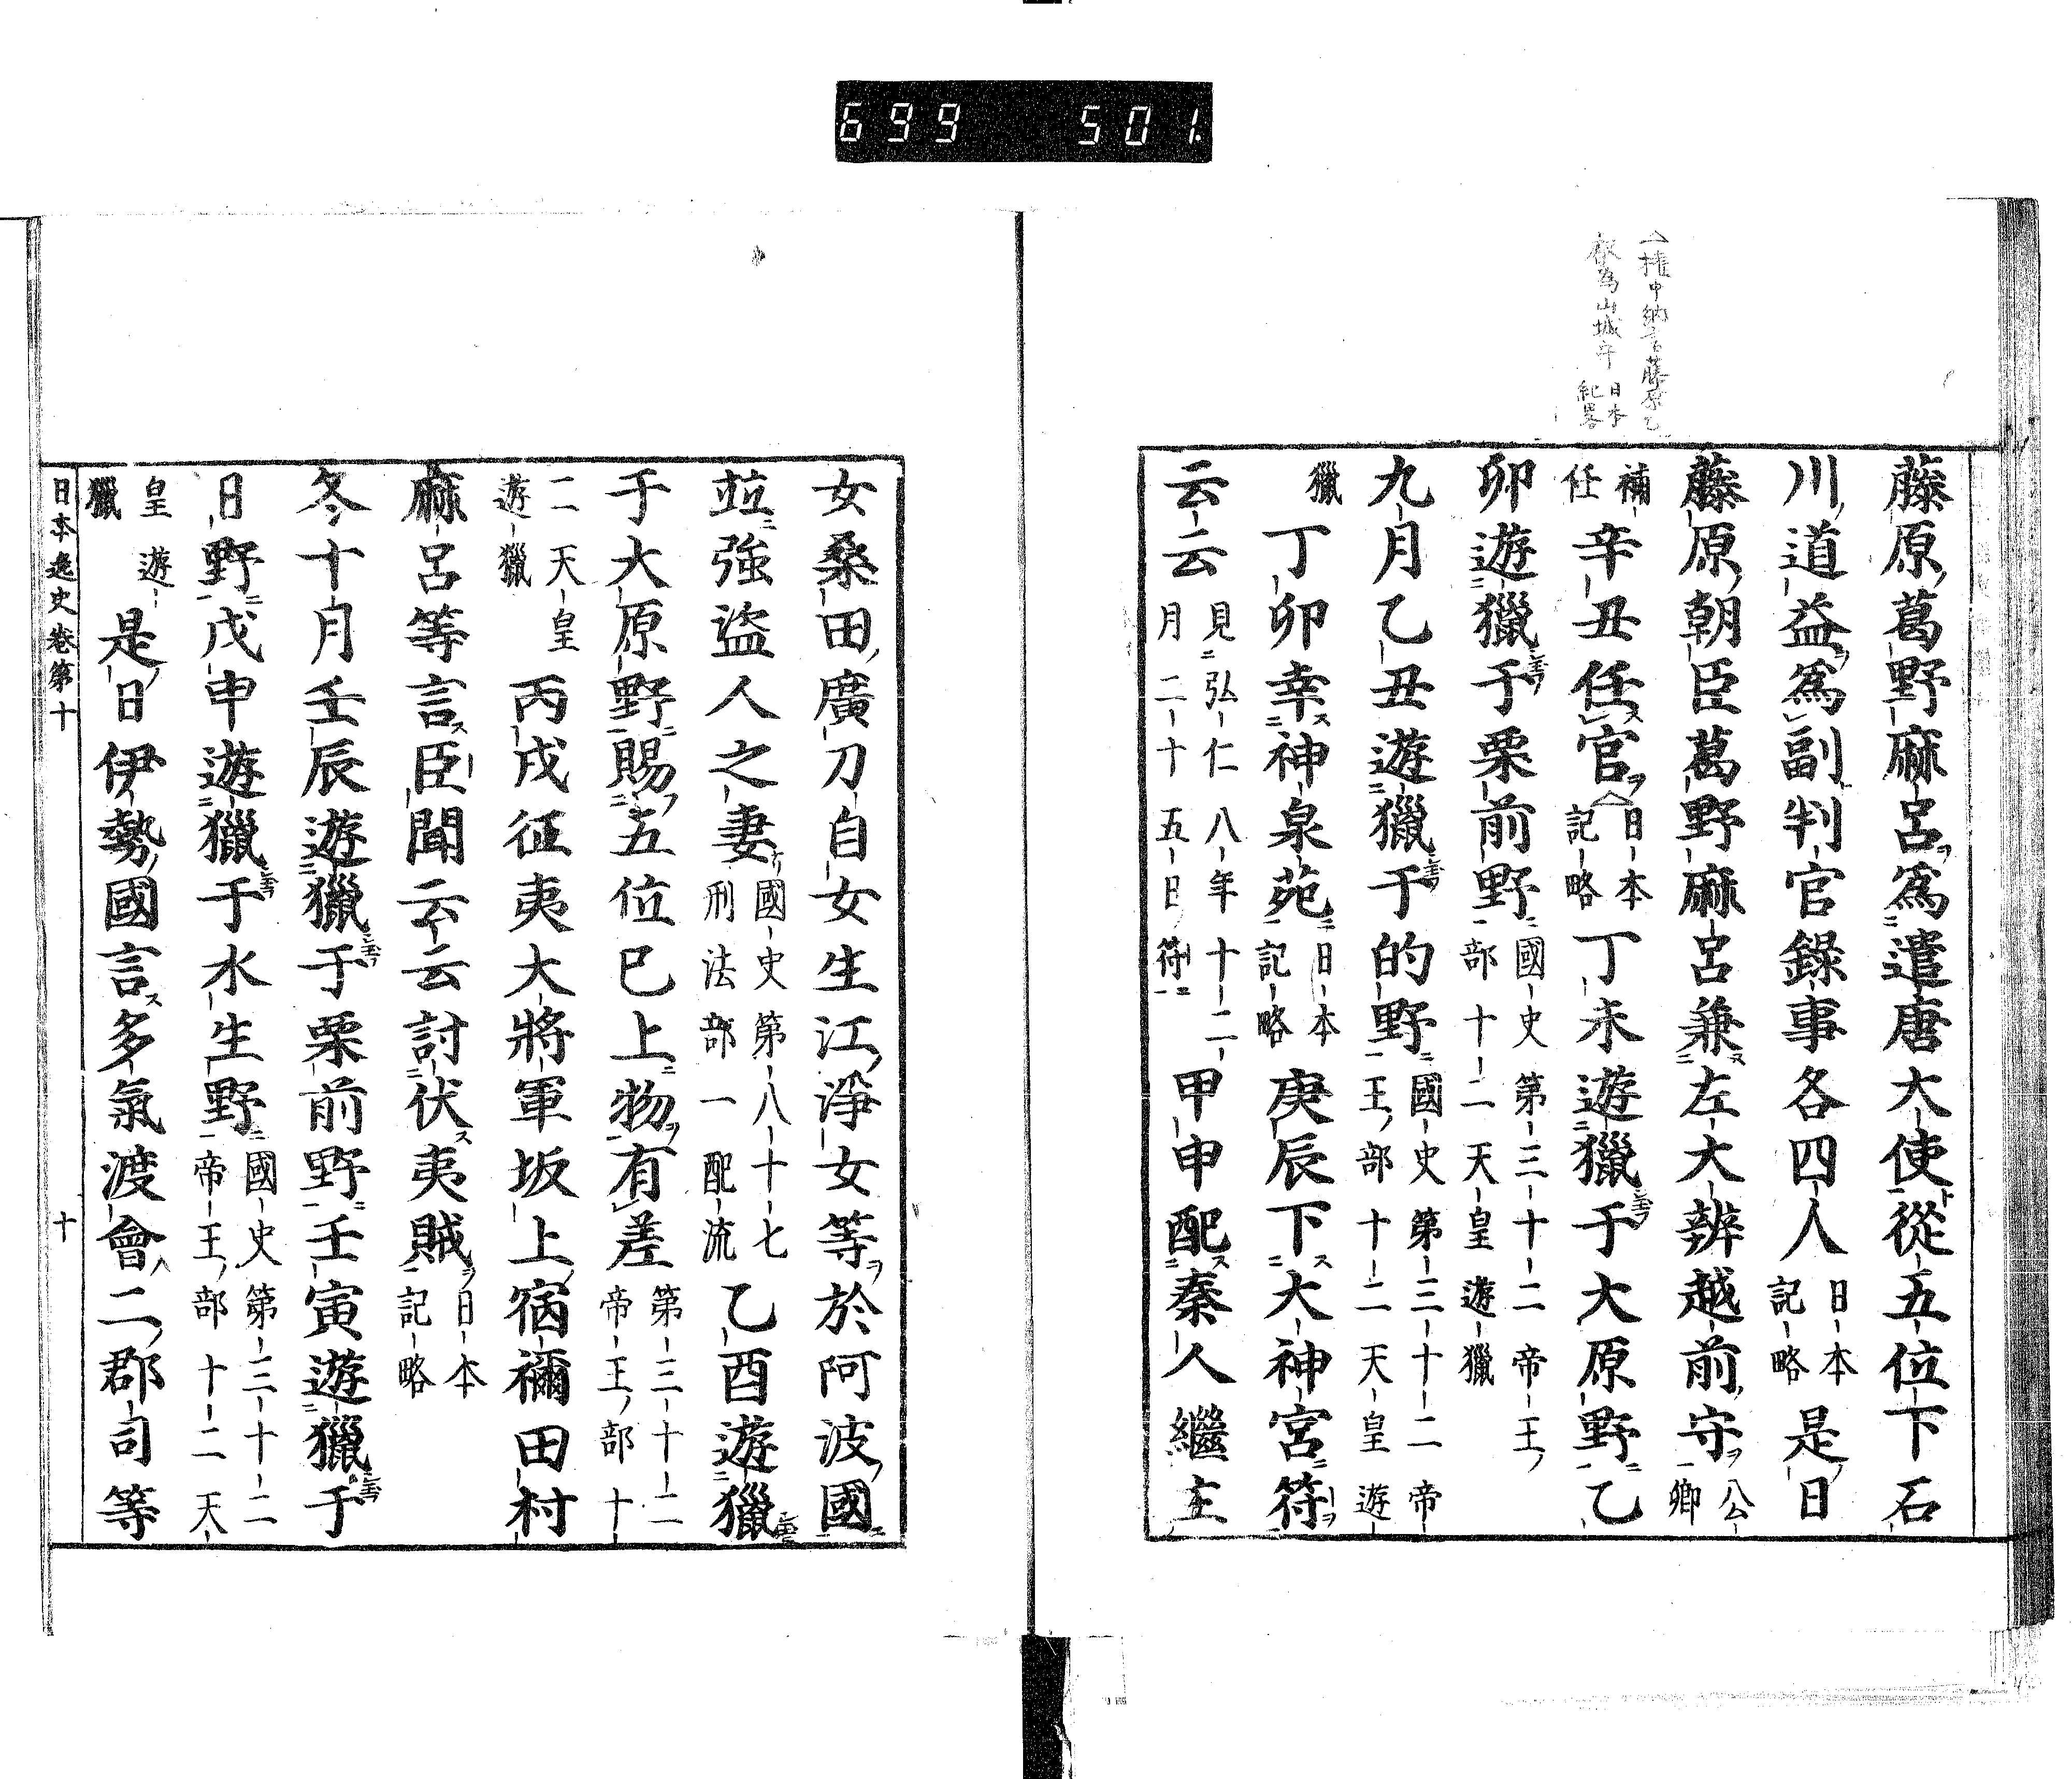 699 501
權中納言藤原乙
叡為山城守 日本紀畧
藤原葛野麻呂爲遣唐大使從五位下石
川道益爲副判官錄事各四人日本記略是日
藤原朝臣葛野麻呂兼左大辨越前守公卿
補任辛丑任官日本記略丁未遊獵于大原野乙
卯遊獵于栗前野國史第三十二帝王部十二天皇遊獵
九月乙丑遊獵于的野國史第三十二帝王部十二天皇遊
獵丁卯幸神泉苑日本記略庚辰下大神宮符
云云見弘仁八年十二月二十五日符甲申配秦人繼主
女桑田廣刀自女生江淨女等於阿波國
竝強盜人之妻國史第八十七刑法部一配流乙酉遊獵
于大原野賜五位已上物有差第三十二帝王部十
二天皇遊獵丙戌征夷大將軍坂上宿禰田村
麻呂等言臣聞云云討伏夷賊日本記略
冬十月壬辰遊獵于栗前野壬寅遊獵于
日野戊申遊獵于水生野國史第三十二帝王部十二天
皇遊獵是日伊勢國言多氣渡會二郡司等
日本逸史卷第十 十